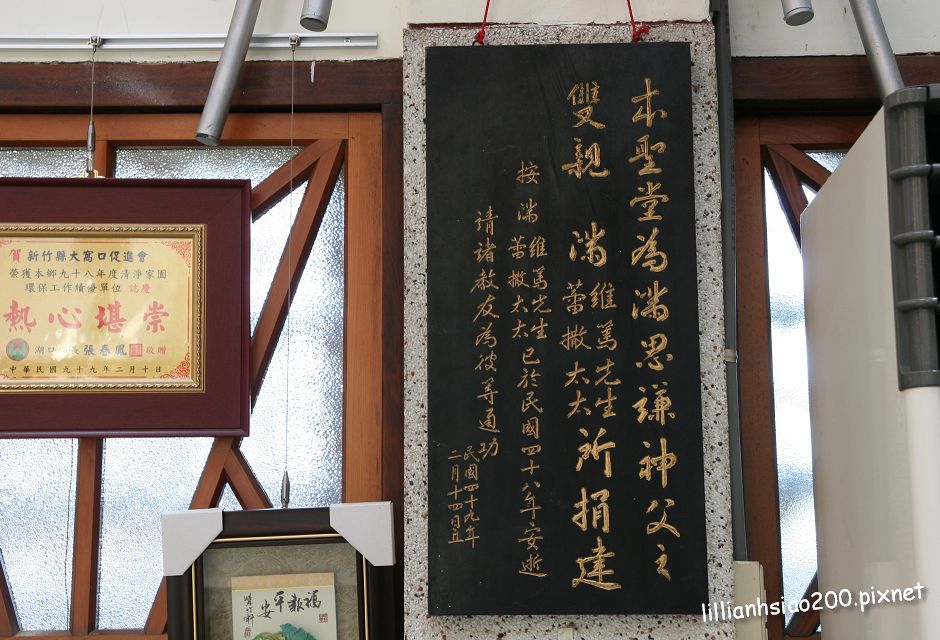 本聖堂為滿思謙神父之
雙親 滿 維篤先生 蕾撒太太 所捐建
按 滿 維篤先生 蕾撒太太 已於民國四十八年安逝
請諸教友為彼等通功
民國四十九年
二月十四日立
賀 新竹縣大窩口促進會
榮獲本鄉九十八年度清淨家園
環保工作績優單位 誌慶
熱心堪崇
湖口鄉長 張春鳳 敬贈
中華民國九十九年二月十日
福報平安
lillianhsiao200.pixnet